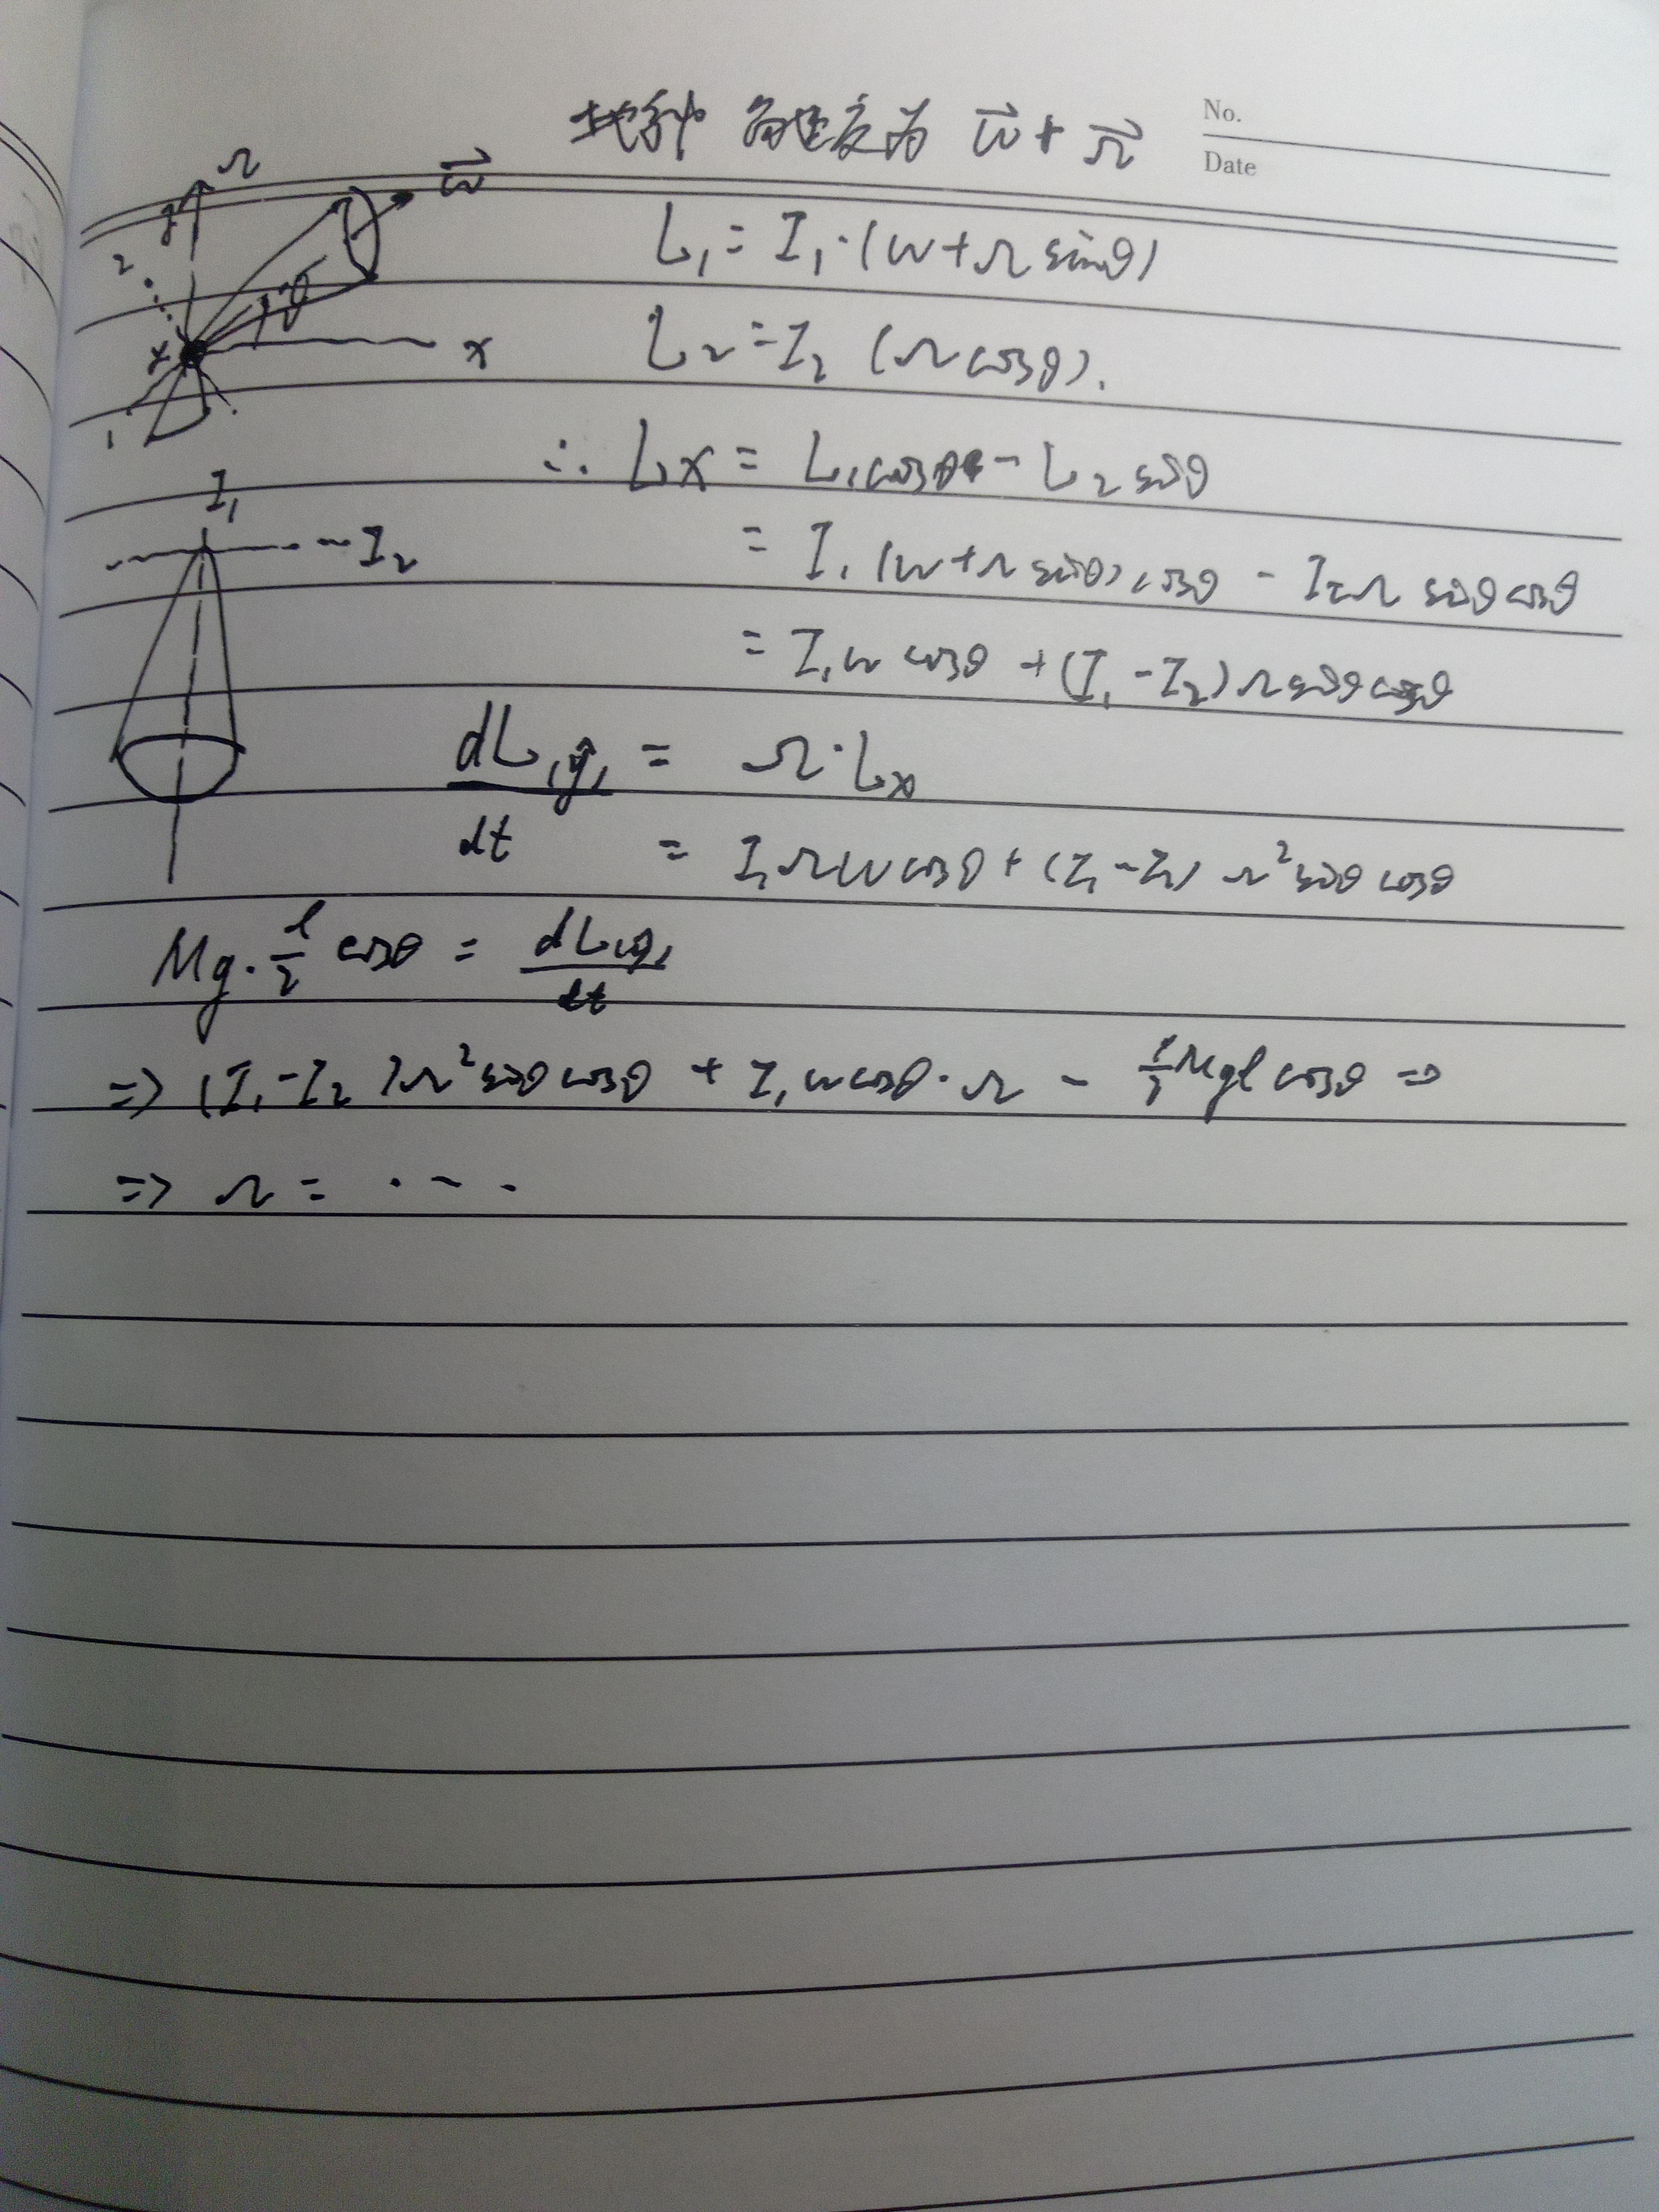 No.
Date
地种 角速度为 w⃗ + Ω⃗
Ω
w⃗
y
2
θ
x
1
L₁ = I₁·(w+Ω sinθ)
L₂ = I₂ (Ω cosθ).
∴ Lx = L₁cosθ - L₂ sinθ
= I₁ (w+Ω sinθ) cosθ - I₂Ω sinθ cosθ
= I₁w cosθ + (I₁-I₂) Ω sinθ cosθ
I₁
I₂
dL₍y₎/dt = Ω·Lx
= I₁Ωw cosθ + (I₁-I₂) Ω² sinθ cosθ
Mg·l/2 cosθ = dL₍y₎/dt
⇒ (I₁-I₂)Ω² sinθ cosθ + I₁w cosθ·Ω - 1/2 Mgl cosθ =0
⇒ Ω = ...